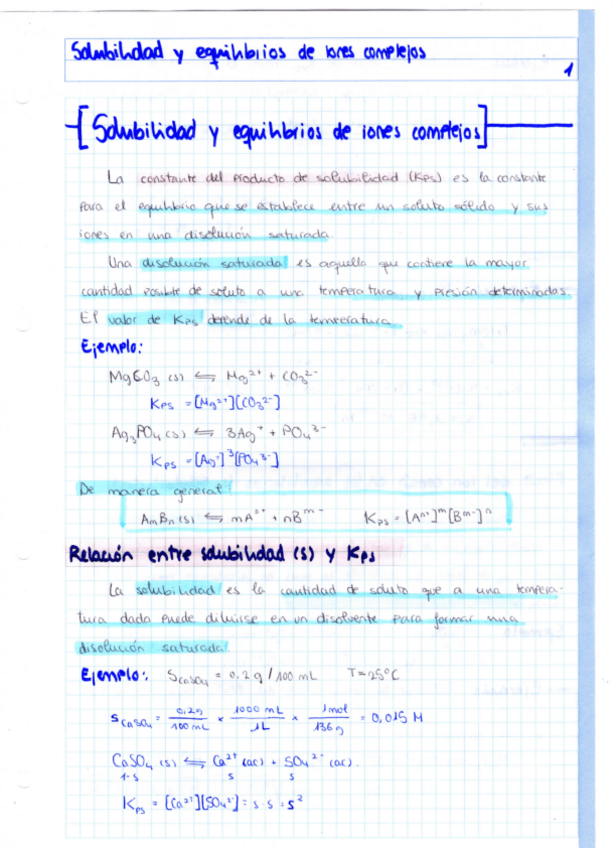 Solubilidad y equilibrios de iones complejos
1
[Solubilidad y equilibrios de iones complejos]
La constante del producto de solubilidad (Kps) es la constante
para el equilibrio que se establece entre un soluto sólido y sus
iones en una disolución saturada.
Una disolución saturada es aquella que contiene la mayor
cantidad posible de soluto a una temperatura y presión determinadas.
El valor de Kps depende de la temperatura.
Ejemplo:
MgCO₃ (s) ⇆ Mg²⁺ + CO₃²⁻
Kps = [Mg²⁺][CO₃²⁻]
Ag₃PO₄ (s) ⇆ 3Ag⁺ + PO₄³⁻
Kps = [Ag⁺]³[PO₄³⁻]
De manera general:
AmBn (s) ⇆ mAⁿ⁺ + nBᵐ⁻ Kps = [Aⁿ⁺]ᵐ[Bᵐ⁻]ⁿ
Relación entre solubilidad (s) y Kps
La solubilidad es la cantidad de soluto que a una tempera-
tura dada puede diluirse en un disolvente para formar una
disolución saturada.
Ejemplo: S CaSO₄ = 0,2 g / 100 mL T=25°C
S CaSO₄ = 0,2g / 100 mL × 1000 mL / 1L × 1mol / 136 g = 0,015 M
CaSO₄ (s) ⇆ Ca²⁺ (ac) + SO₄²⁻ (ac).
1-s s s
Kps = [Ca²⁺][SO₄²⁻] = s · s = s²